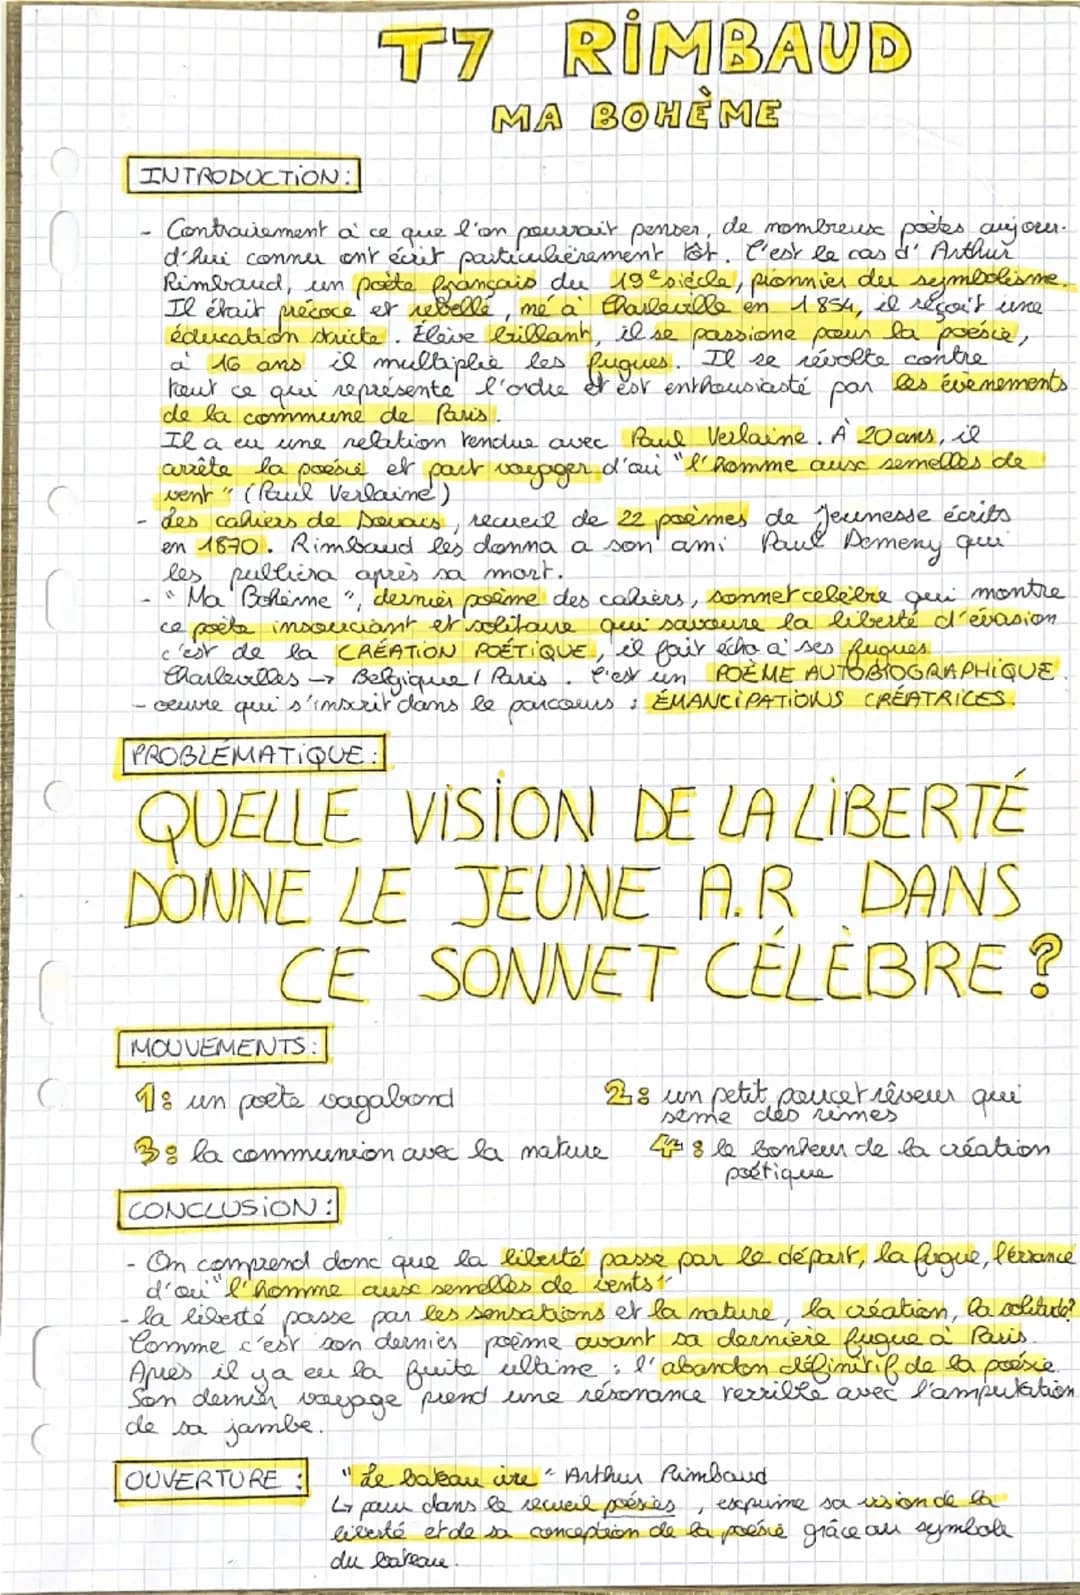 T7 RIMBAUD
MA BOHÈME
INTRODUCTION:
- Contrairement à ce que l'on pourrait penser, de nombreux poètes aujour-
d'hui connu ont écrit particulièrement tôt. C'est le cas d'Arthur
Rimbaud, un poète français du 19e siècle, pionnier du symbolisme.
Il était précoce et rebelle, né à Charleville en 1854, il reçoit une
éducation stricte. Élève brillant, il se passione pour la poésie,
à 16 ans il multiplie les fugues. Il se révolte contre
tout ce qui représente l'ordre et est enthousiasté par les évènements
de la commune de Paris.
Il a eu une relation tendue avec Paul Verlaine. À 20 ans, il
arrête la poésie et part voyager d'où "l'homme aux semelles de
vent" (Paul Verlaine)
- Les cahiers de Douais, recueil de 22 poèmes de Jeunesse écrits
en 1870. Rimbaud les donna a son ami Paul Demeny qui
les publiera après sa mort.
- "Ma Bohème", dernier poème des cahiers, sonnet celèbre qui montre
ce poète insouciant et solitaire qui savoure la liberté d'évasion
c'est de la CRÉATION POÉTIQUE, il fait écho à ses fugues
Charlevilles → Belgique / Paris. C'est un POÈME AUTOBIOGRAPHIQUE.
- oeuvre qui s'inscrit dans le parcours : ÉMANCIPATIONS CRÉATRICES.
PROBLÉMATIQUE:
QUELLE VISION DE LA LIBERTÉ
DONNE LE JEUNE A.R DANS
CE SONNET CÉLÈBRE ?
MOUVEMENTS:
1: un poète vagabond
2: un petit poucet rêveur qui
sème des rimes
3: la communion avec la nature
4: le bonheur de la création
poétique
CONCLUSION:
- On comprend donc que la liberté passe par le départ, la fugue, l'errance
d'où "l'homme aux semelles de vents".
- la liberté passe par les sensations et la nature, la création, la solitude?
Comme c'est son dernier poème avant sa dernière fugue à Paris.
Après il ya eu la fuite ultime : l'abandon définitif de la poésie.
Son dernier voyage prend une résonance terrible avec l'amputation
de sa jambe.
OUVERTURE :
"Le bateau ivre" Arthur Rimbaud
↳ paru dans le recueil poésies, exprime sa vision de la
liberté et de sa conception de la poésie grâce au symbole
du bateau.